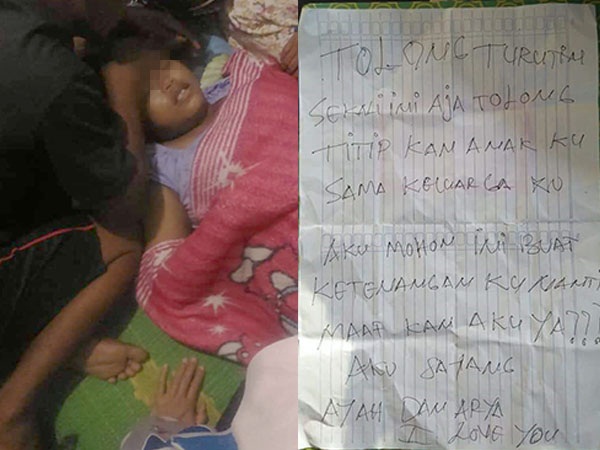 TOLONG TURUTIN
SEKALI INI AJA TOLONG
TITIP KAN ANAK KU
SAMA KELUARGA KU
AKU MOHON INI BUAT
KETENANGAN KU NANTI
MAAF KAN AKU YA???
AKU SAYANG
AYAH DAN ARYA
I LOVE YOU